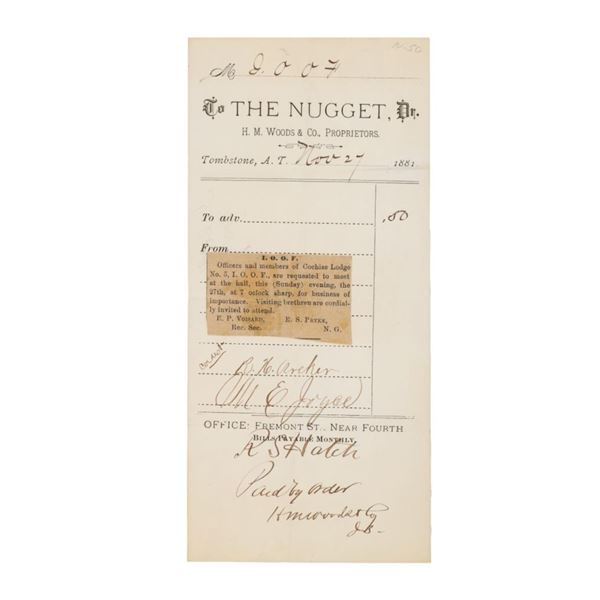 M I. O O F
To THE NUGGET, Dr.
H. M. WOODS & CO., PROPRIETORS.
Tombstone, A. T. Nov 27 1881
To adv. .50
From
I. O. O. F.
Officers and members of Cochise Lodge
No. 5, I. O. O. F., are requested to meet
at the hall, this (Sunday) evening, the
27th, at 7 oclock sharp, for business of
importance. Visiting brethren are cordial-
ly invited to attend.
E. P. VOISARD, E. S. PAYNE,
Rec. Sec. N. G.
Correct
B. H. Archer
M E Joyce
OFFICE: FREMONT ST., NEAR FOURTH
BILLS PAYABLE MONTHLY.
R S Hatch
Paid by order
H M Woods & Co